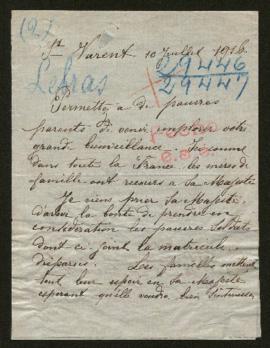 (2)
St Varent 10 Juillet 1916.
29446
29447
Lefras
Permettez a de pauvres
parents de venir implorer votre
grand bienveillance. Si comme
dans toute la France les mères de
famille ont recours a Sa Majesté
Je viens prier Sa Majesté
d'avoir la bonté de prendre en
considération les pauvres soldats
dont ci joint la matricule
disparus. Les familles mettent
tout leur espoir en Sa Majesté
esperant qu'elle voudra bien s'intéresser